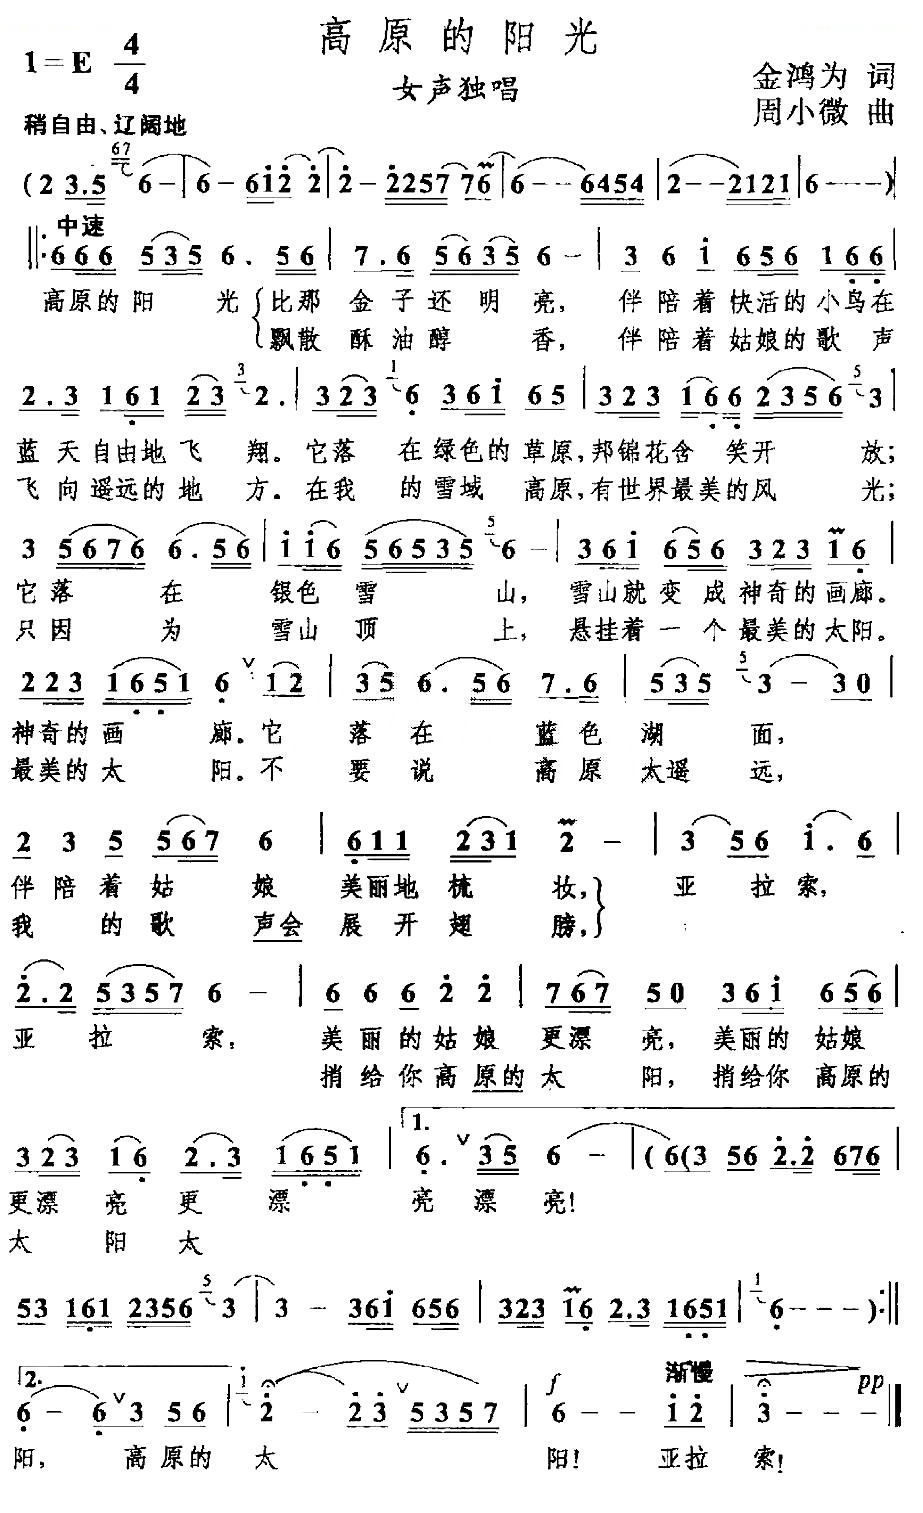 高原的阳光
1=E 4/4
女声独唱
金鸿为 词
周小微 曲
稍自由、辽阔地
67
(2 3.5 6 - | 6 - 612 2 | 2 - 2257 76 | 6 - - 6454 | 2 - - 2121 | 6 - - - )
中速
666 535 6. 56 | 7.6 5635 6 - | 3 6 i 656 166
高原的阳 光 比那 金子还明 亮, 伴陪着快活的小鸟在
飘散 酥油醇 香, 伴陪着姑娘的歌声
2.3 161 23 3 2. | 323 1 6 36i 65 | 323 166 2356 5 3 |
蓝天自由地飞 翔。它落 在绿色的草原,邦锦花含 笑开 放;
飞向遥远的地 方。在我 的雪域 高原,有世界最美的风 光;
3 5676 6.56 | i i6 56535 5 6 - | 36i 656 323 16 |
它落 在 银色雪 山, 雪山就变成神奇的画廊。
只因 为 雪山顶 上, 悬挂着一个最美的太阳。
223 1651 6 ∨ 12 | 35 6.56 7.6 | 535 5 3 - 30 |
神奇的画 廊。它 落在 蓝色湖 面,
最美的太 阳。不 要说 高原太遥 远,
2 3 5 567 6 | 611 231 2 - | 3 56 i.6 |
伴陪着姑 娘 美丽地梳 妆, 亚 拉索,
我 的歌 声会 展开翅 膀,
2.2 5357 6 - | 6 6 6 2 2 | 767 50 36i 656 |
亚 拉 索; 美丽的姑娘 更漂 亮, 美丽的 姑娘
捎给你高原的太 阳, 捎给你 高原的
1.
323 16 2.3 1651 | 6. ∨ 35 6 - | (6(3 56 2.2 676 |
更漂 亮 更 漂 亮漂 亮!
太 阳 太
53 161 2356 5 3 | 3 - 36i 656 | 323 16 2.3 1651 | 1 6 - - - ) :||
2. 渐慢
f pp
6 - 6 ∨ 3 56 | i 2 - 23 ∨ 5357 | 6 - - i2 | 3 - - - ||
阳, 高原的 太 阳! 亚拉 索!